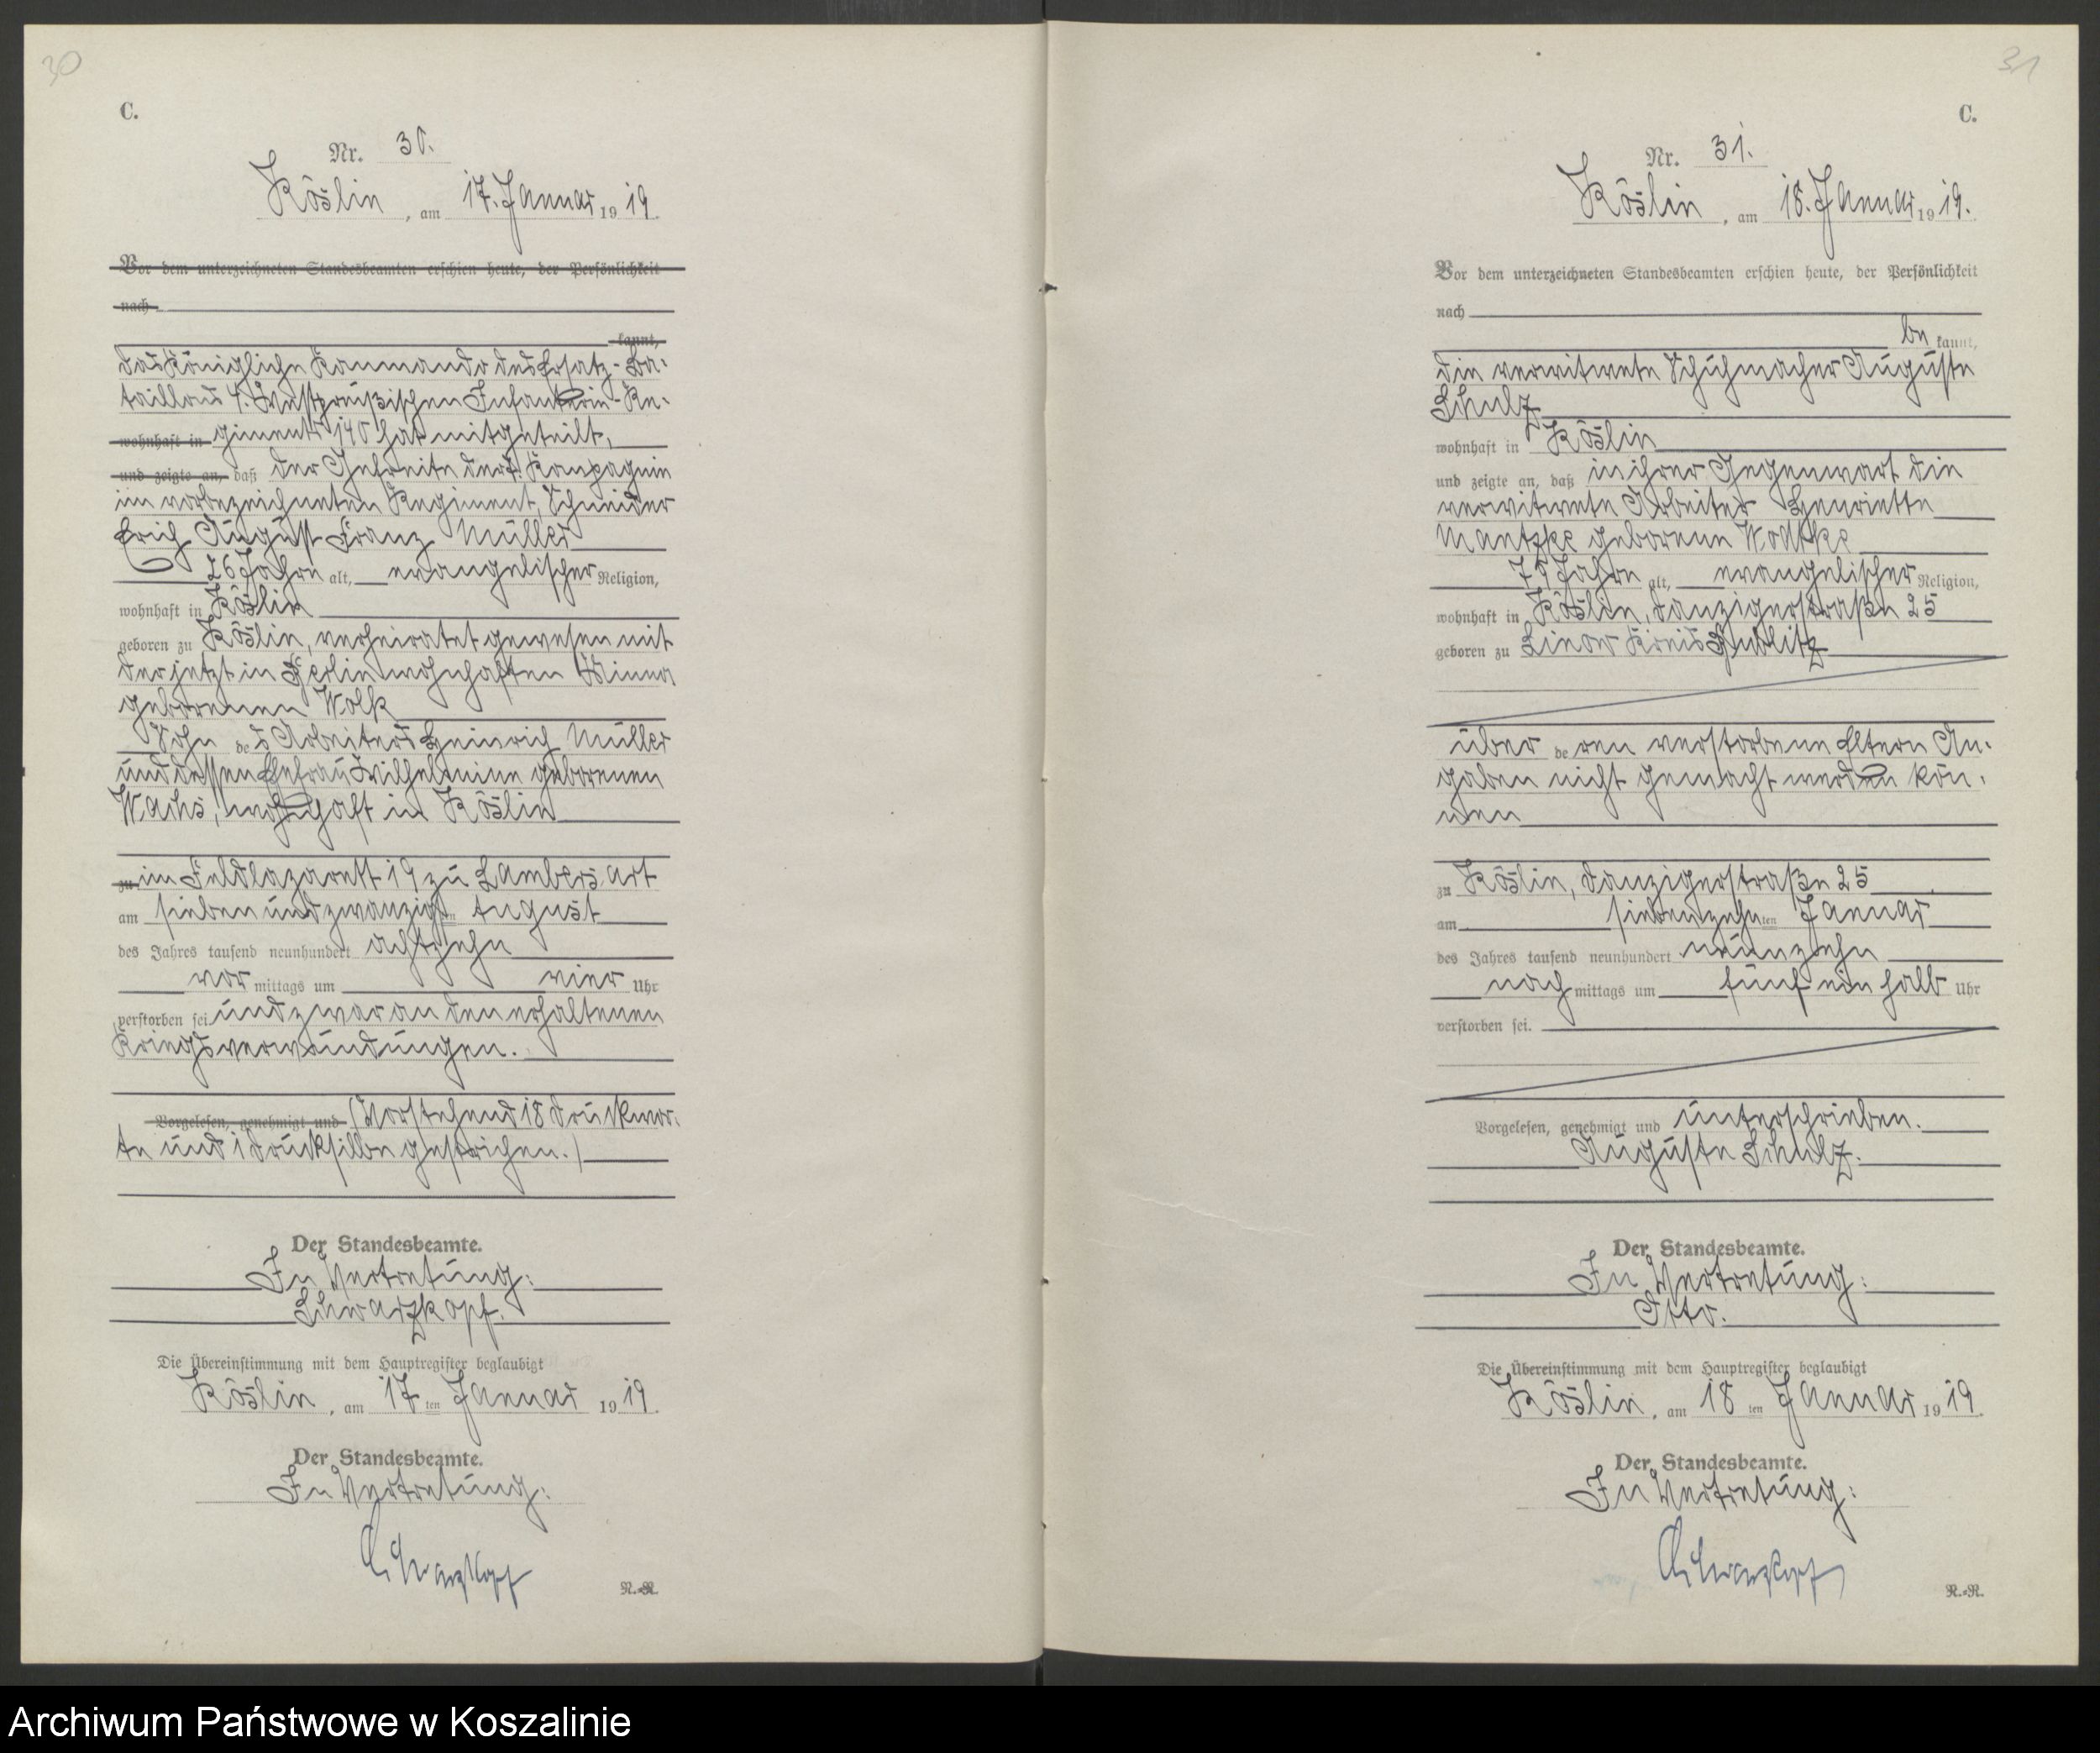 30
C.
Nr. 30.
Köslin, am 17. Januar 1919.
Vor dem unterzeichneten Standesbeamten erschien heute, der Persönlichkeit
nach
kannt,
das Königliche Kommando des Ersatz-Ba-
taillons 4. Westpreußischen Infanterie-Re-
wohnhaft in giments 140 hat mitgeteilt,
und zeigte an, daß der Gefreite der Kompagnie
im vorbezeichneten Regiment, Schneider
Erich August Franz Müller
26 Jahre alt, evangelischer Religion,
wohnhaft in Köslin
geboren zu Köslin, verheiratet gewesen mit
der jetzt in Berlin wohnhaften Minna
geborenen Wolk
Sohn des Arbeiters Heinrich Müller
und dessen Ehefrau Wilhelmine geborenen
Wachs, wohnhaft in Köslin
zu im Feldlazarett 19 zu Lambersart
am sieben und zwanzigsten August
des Jahres tausend neunhundert achtzehn
vor mittags um vier Uhr
verstorben sei und zwar an den erhaltenen
Kriegsverwundungen.
Vorgelesen, genehmigt und (Vorstehend 18 Druckwor-
te und 1 Drucksilbe gestrichen.)
Der Standesbeamte.
In Vertretung:
Schwarzkopf.
Die Übereinstimmung mit dem Hauptregister beglaubigt
Köslin, am 17ten Januar 1919.
Der Standesbeamte.
In Vertretung:
Schwarzkopf
R.-R.
31
C.
Nr. 31.
Köslin, am 18. Januar 1919.
Vor dem unterzeichneten Standesbeamten erschien heute, der Persönlichkeit
nach
be kannt,
die verwitwete Schuhmacher Auguste
Schulz
wohnhaft in Köslin
und zeigte an, daß in ihrer Gegenwart die
verwitwete Arbeiter Henriette
Mantzke geborene
79 Jahre alt, evangelischer Religion,
wohnhaft in Köslin, Danzigerstraße 25
geboren zu Kreis Bublitz
über deren verstorbene Eltern An-
gaben nicht gemacht werden kön-
nen
zu Köslin, Danzigerstraße 25
am siebenzehnten Januar
des Jahres tausend neunhundert neunzehn
nach mittags um fünf ein halb Uhr
verstorben sei.
Vorgelesen, genehmigt und unterschrieben.
Auguste Schulz.
Der Standesbeamte.
In Vertretung:
Otto.
Die Übereinstimmung mit dem Hauptregister beglaubigt
Köslin, am 18ten Januar 1919.
Der Standesbeamte.
In Vertretung:
Schwarzkopf
R.-R.
Archiwum Państwowe w Koszalinie